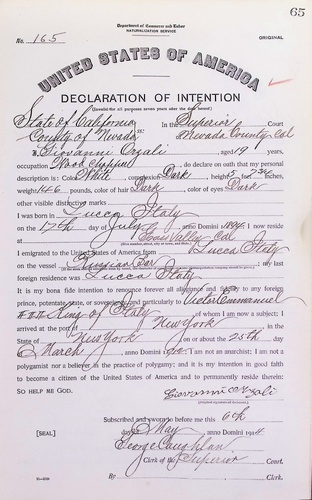 65
Department of Commerce and Labor
NATURALIZATION SERVICE
No. 165
ORIGINAL
UNITED STATES OF AMERICA
DECLARATION OF INTENTION
(Invalid for all purposes seven years after the date hereof)
State of California
County of Nevada ss:
In the Superior Court
Nevada County, Cal
I, Giovanni, aged 19 years,
occupation Wood Chopper, do declare on oath that my personal
description is: Color White, complexion Dark, height 5 feet
weight 146 pounds, color of hair Dark, color of eyes Dark
other visible distinctive marks
I was born in Lucca Italy
on the 17th day of July, anno Domini 1894; I now reside
at Grass Valley Cal
I emigrated to the United States of America from Lucca Italy
on the vessel; my last
foreign residence was Lucca Italy
It is my bona fide intention to renounce forever all allegiance and fidelity to any foreign
prince, potentate, state, or sovereignty, and particularly to Victor Emmanuel
King of Italy, of whom I am now a subject; I
arrived at the port of New York, in the
State of New York on or about the 25th day
of March, anno Domini; I am not an anarchist; I am not a
polygamist nor a believer in the practice of polygamy; and it is my intention in good faith
to become a citizen of the United States of America and to permanently reside therein:
SO HELP ME GOD.
Giovanni
Subscribed and sworn to before me this 6th
[SEAL]
day of May, anno Domini 1914
George Caughlan
Clerk of the Superior Court
By, Clerk.